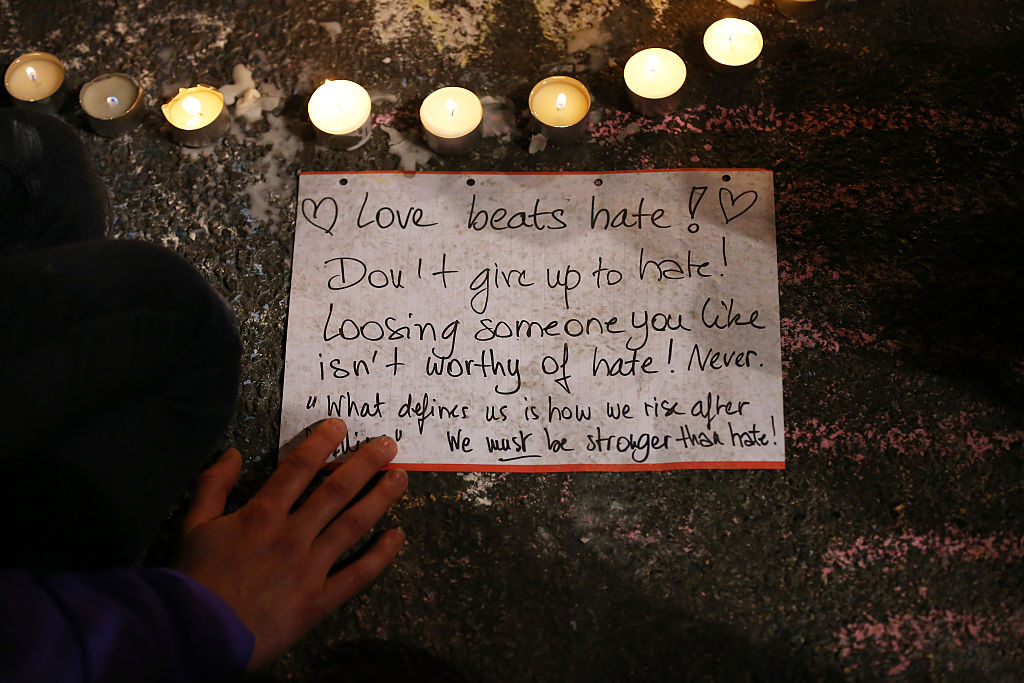 ♡ Love beats hate! ♡
Don't give up to hate!
Loosing someone you like
isn't worthy of hate! Never.
"What defines us is how we rise after
" We must be stronger than hate!